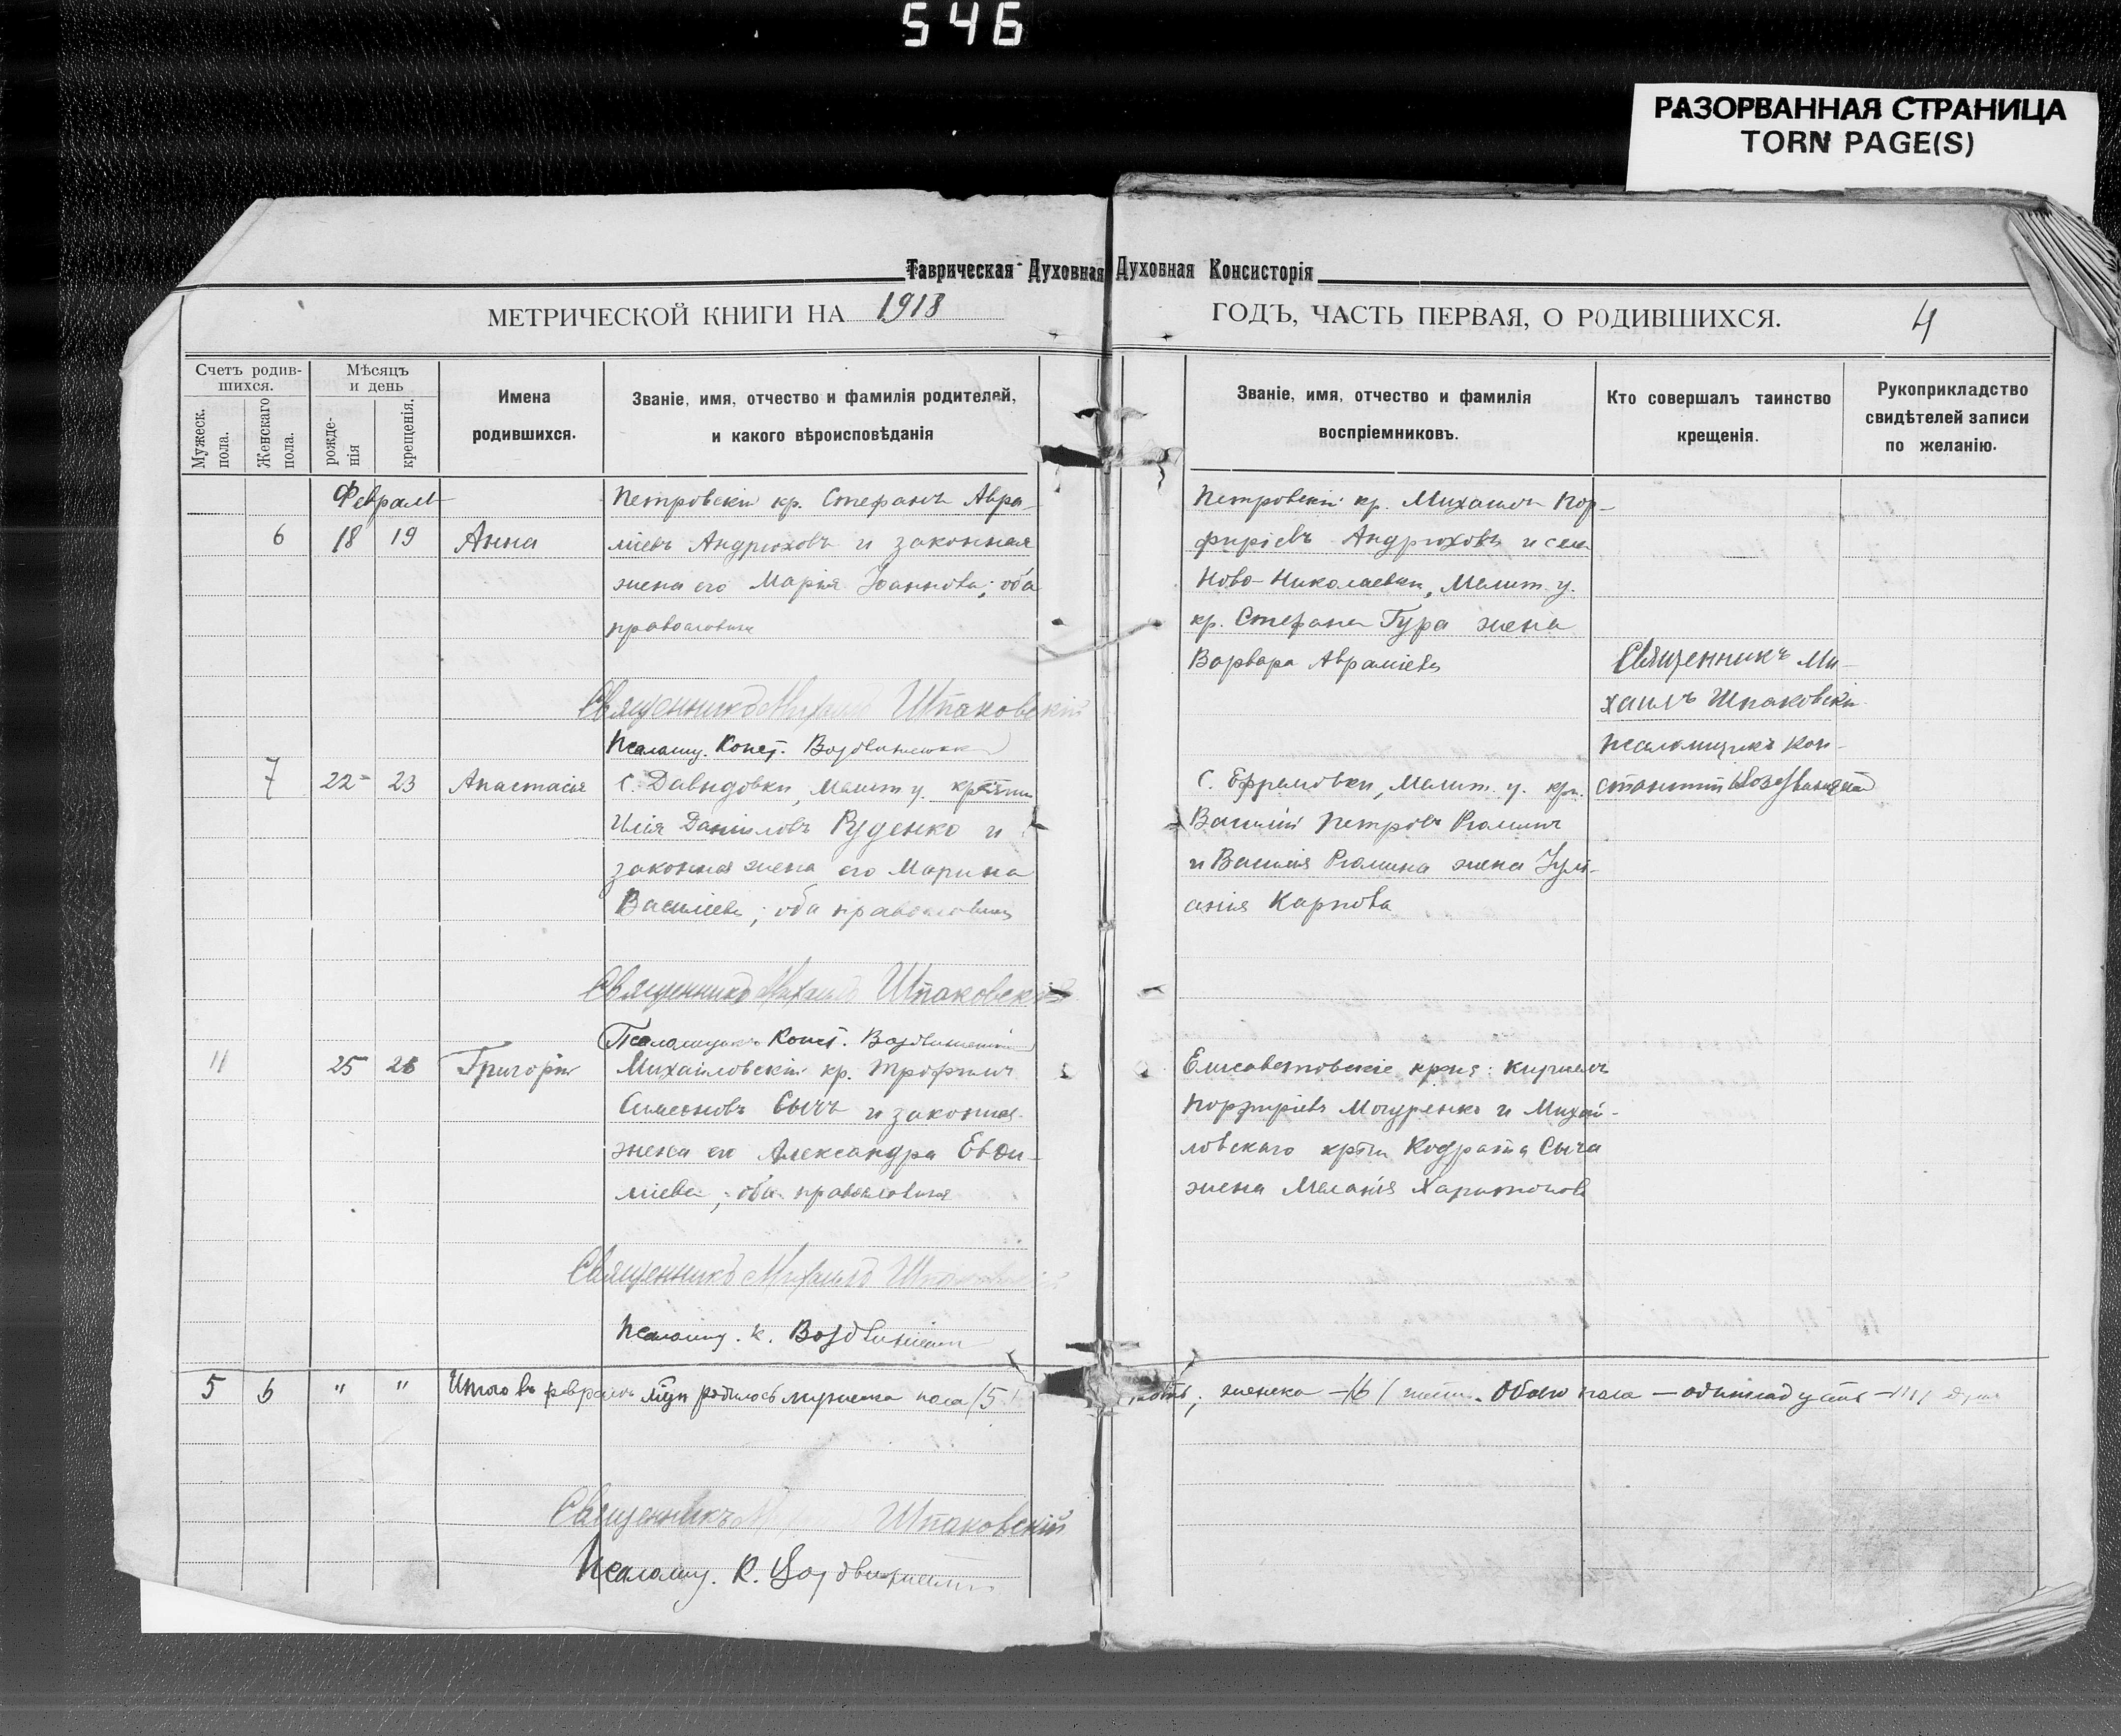 546
РАЗОРВАННАЯ СТРАНИЦА
TORN PAGE(S)
Таврическая Духовная Духовная Консисторія
МЕТРИЧЕСКОЙ КНИГИ НА 1918 ГОДЪ, ЧАСТЬ ПЕРВАЯ, О РОДИВШИХСЯ. 4
Счетъ родив-
шихся.
Мужеск.
пола.
Женскаго
пола.
Мѣсяцъ
и день
рожде-
нія
крещенія.
Имена
родившихся.
Званіе, имя, отчество и фамилія родителей,
и какого вѣроисповѣданія
Званіе, имя, отчество и фамилія
воспріемниковъ.
Кто совершалъ таинство
крещенія.
Рукоприкладство
свидѣтелей записи
по желанію.
Февраль
6 18 19 Анна
Петровскій кр. Стефанъ Авра-
міевъ Андрюховъ и законная
жена его Марія Іоаннова; оба
православные
Священникъ Михаилъ Шпаковскій
Псаломщ. Конст. Воздвиженскій
Петровскій кр. Михаилъ Пор-
фиріевъ Андрюховъ и села
Ново-Николаевки, Мелит. у.
кр. Стефана Гура жена
Варвара Авраміева
Священникъ Ми-
хаилъ Шпаковскій
псаломщикъ Кон-
стантинъ Воздвиженскій
7 22 23 Анастасія
С. Давыдовки, Мелит. у. кр-нинъ
Илія Даніиловъ Руденко и
законная жена его Марина
Василіева; оба православные
Священникъ Михаилъ Шпаковскій
Псаломщикъ Конст. Воздвиженскій
С. Ефремовки, Мелит. у. кр.
Василій Петровъ Рюминъ
и Василія Рюмина жена Іулі-
анія Карпова
11 25 26 Григорій
Михайловскій кр. Трофимъ
Симеоновъ Сычъ и законная
жена его Александра Евѳи-
міева; оба православные
Священникъ Михаилъ Шпаковскій
Псаломщ. К. Воздвиженскій
Елисаветовскіе кр-не: Кириллъ
Порфиріевъ и Михай-
ловскаго кр-на Кодрата Сыча
жена Меланія Харитонова
5 6 " " Итого въ февралѣ родилось мужеска пола /5/ пять; женска -/6/ шесть. Обоего пола - одиннадцать -/11/ душъ
Священникъ Шпаковскій
Псаломщ. К. Воздвиженскій